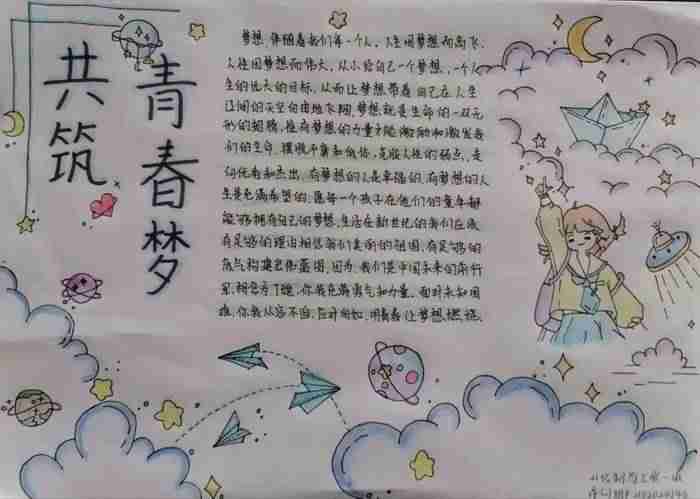 共筑
青春梦
梦想,伴随着我们每一个人,人生因梦想而高飞,
人性因梦想而伟大,从小给自己一个梦想,一个人
生的远大的目标,从而让梦想带着自己在人生
辽阔的天空自由地飞翔,梦想就是生命的一双无
形的翅膀,惟有梦想的力量才能激励和激发我
们的生命,摆脱平庸和低俗,克服人性的弱点,走
向优秀和杰出,有梦想的人是幸福的,有梦想的人
生是充满希望的,愿每一个孩子在他们的童年都
能够拥有自己的梦想,生活在新世纪的我们应该
有足够的理由相信我们美丽的祖国,有足够的
底气构建宏伟蓝图,因为,我们是中国未来的前行
家,担负
你我充满勇气和力量,面对未知困
难,你我从容不迫,应对自如,用青春让梦想燃烧。